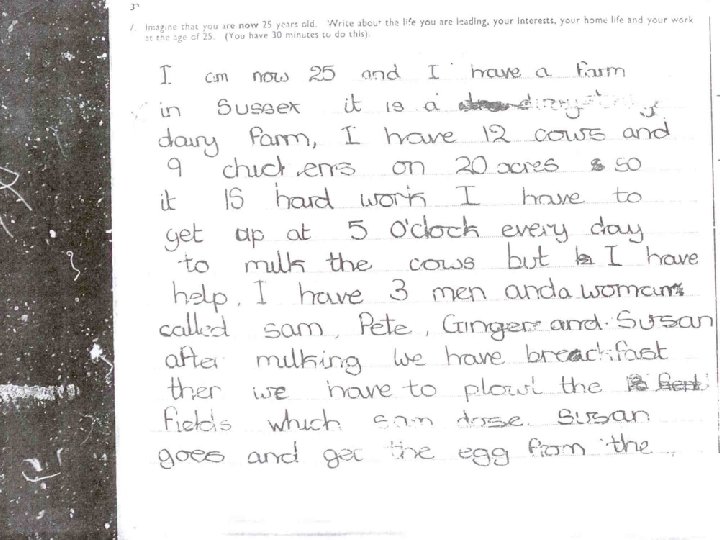 2. Imagine that you are now 25 years old. Write about the life you are leading, your interests, your home life and your work
at the age of 25. (You have 30 minutes to do this).
I am now 25 and I have a farm
in Sussex it is a
dairy farm, I have 12 cows and
9 chickens on 20 acres so
it is hard work I have to
get up at 5 O'clock every day
to milk the cows but I have
help. I have 3 men and a woman
called Sam, Pete, Ginger and Susan
after milking we have breackfast
then we have to plow the
fields which sam dose. Susan
goes and get the egg from the